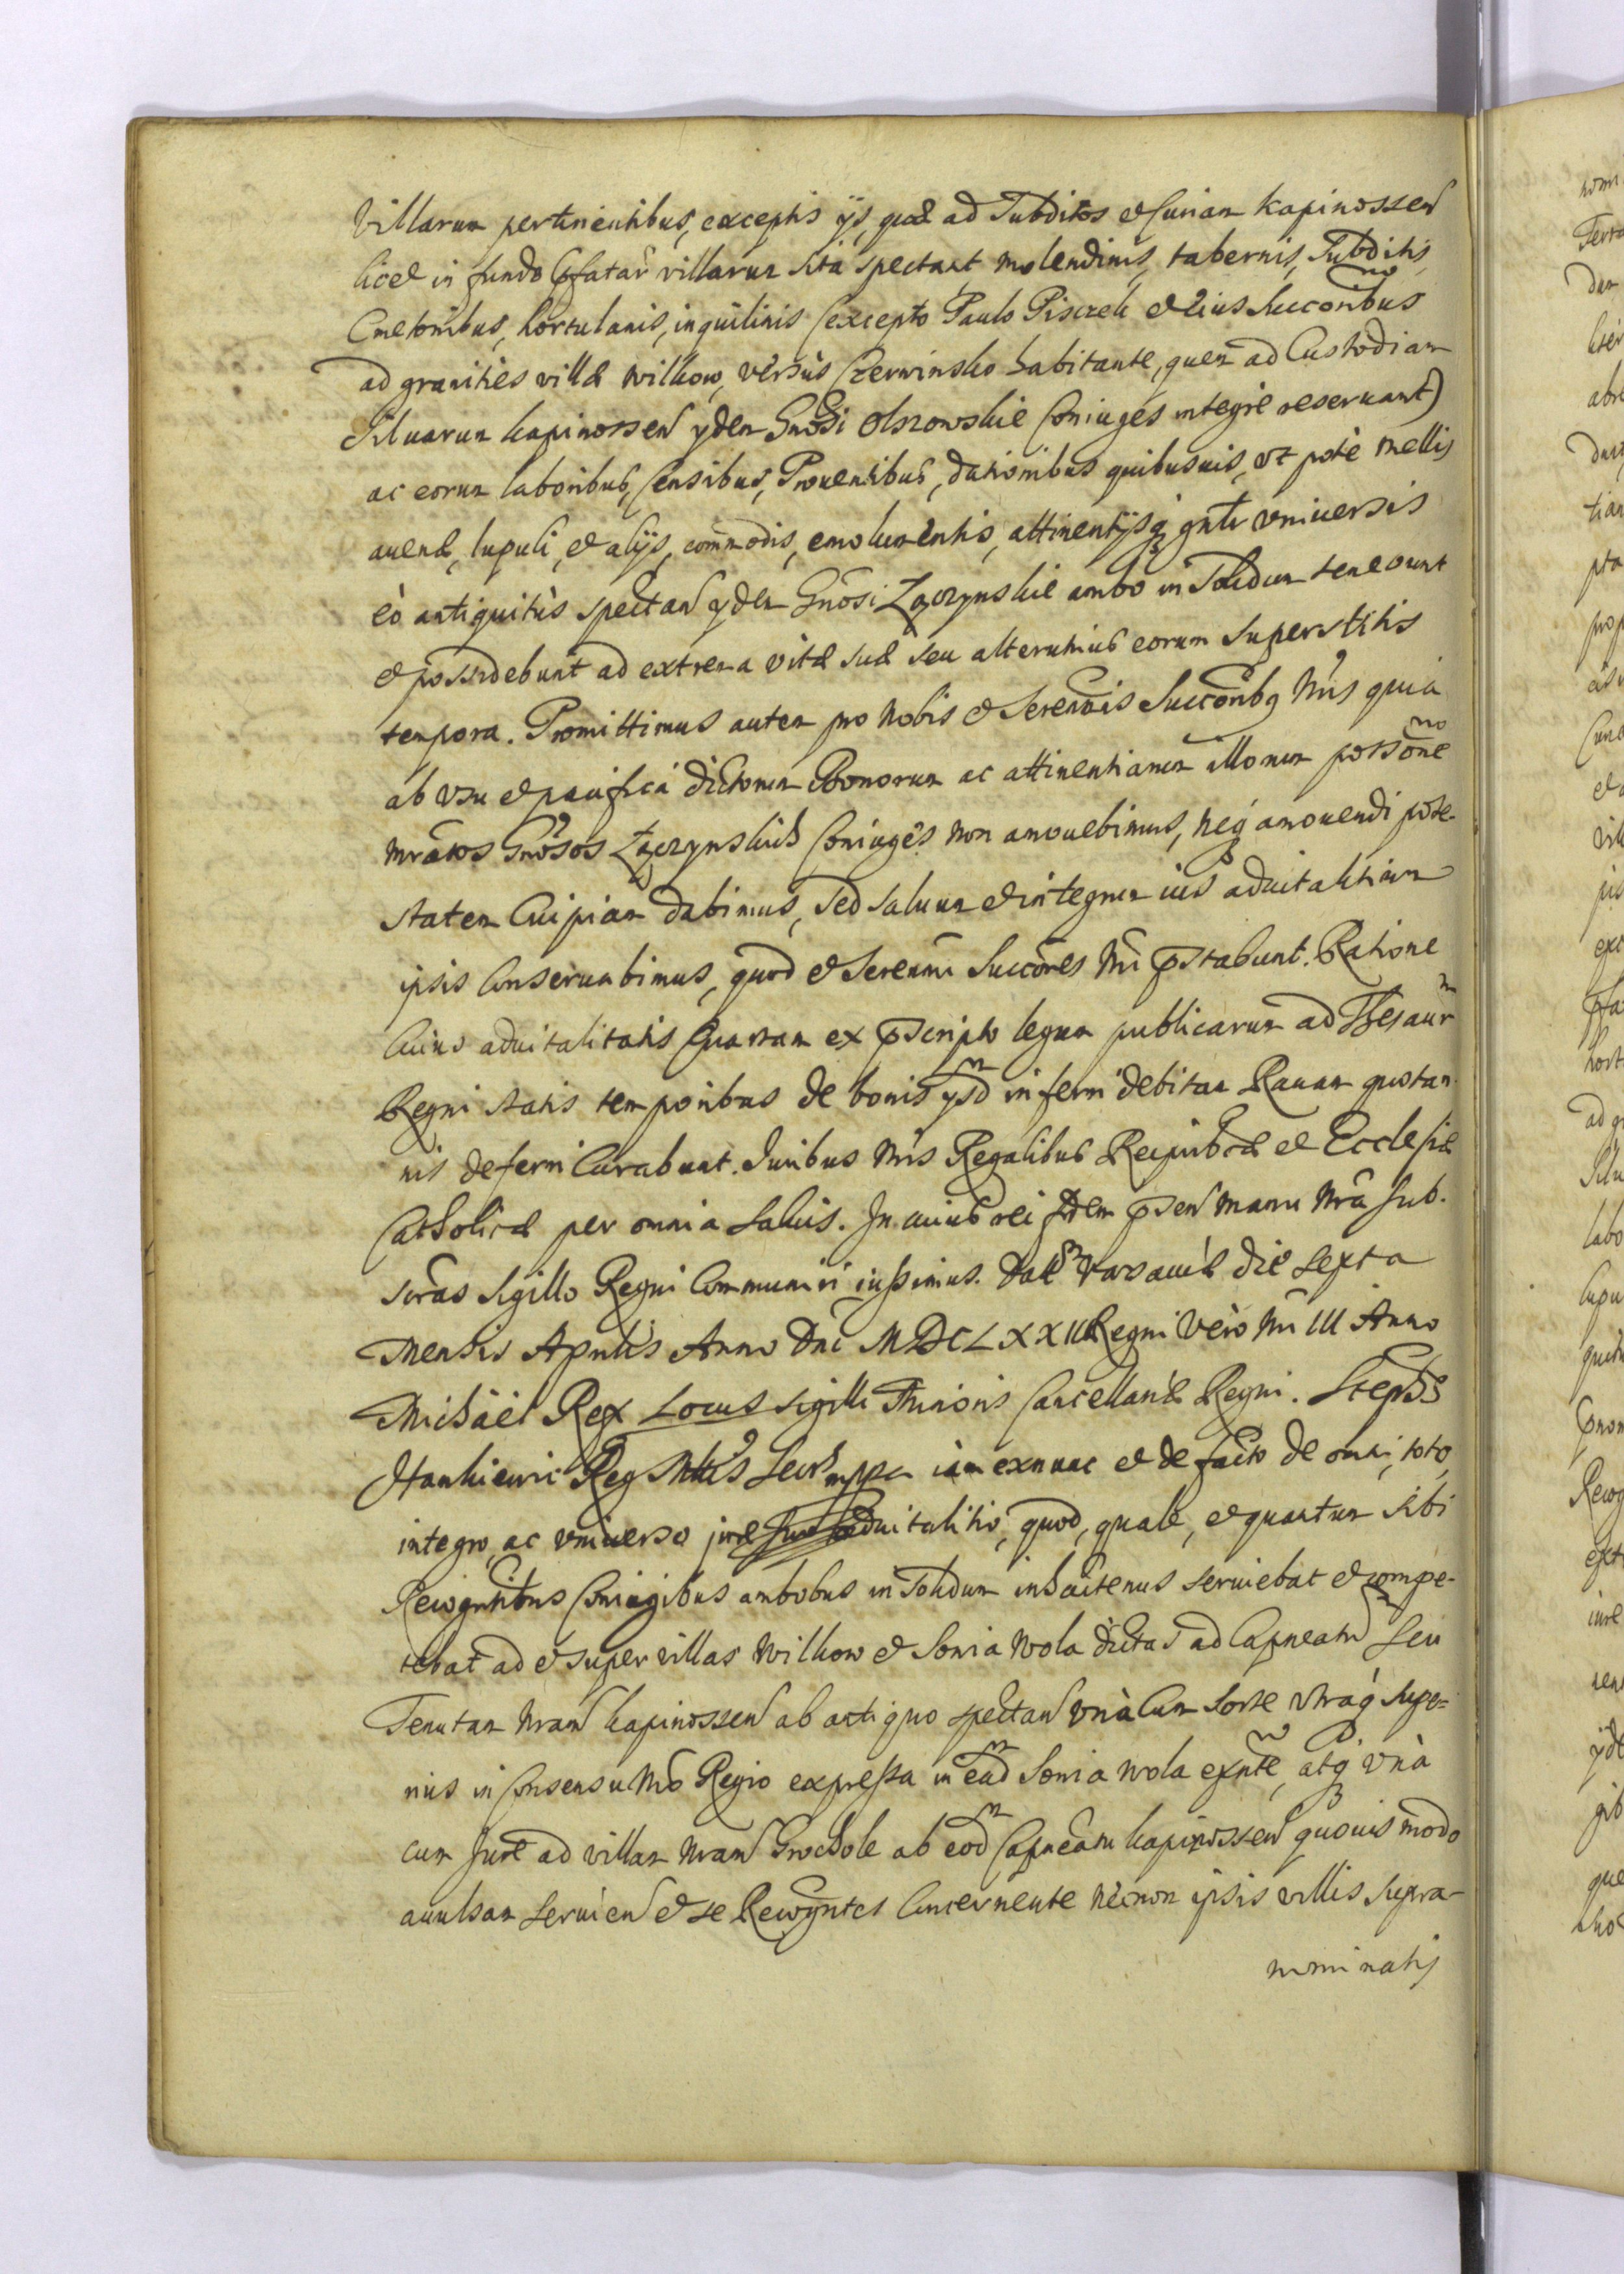 Villarum pertinentibus, exceptis ijs, quæ ad Subditos et Curiam Kapinossen
licet in fundo pfatar villarum sita spectant molendinis, tabernis, Subditis,
Cmetonibus, hortulanis, inquilinis (excepto Paulo Piszczek et eius Succoribus
ad granities villæ Wilkow, versus Czerwinsko habitante, quem ad Custodiam
Siluarum Kapinossen ijdem Gnosi Olszowskie Coniuges integre reseruant)
ac eorum laboribus, Censibus, Prouentibus, dationibus quibusuis, vt pote mellis
auenæ, lupuli, et alijs, comodis, emolumentis, attinentijsq gntr vniuersis
eò antiquitùs spectan ijdem Gnosi Zaczynskie ambo in Solidum tenebunt
et possidebunt ad extrema vitæ suæ seu alterutrius eorum superstitis
tempora. Promittimus autem pro Nobis et Serenmis Succoribq Nris quia
ab vsu et pacifica dictorum Bonorum ac attinentiarum illorum possone
mratos Gnosos Łączynskich Coniuges non amouebimus, neq amouendi pote-
statem Cuipiam dabimus, sed saluum et integrum ius aduitalitium
ipsis Conseruabimus, quod et Serenmi Succores Nri pstabunt. Ratione
Cuius aduitalitatis Quartam ex pscripto legum publicarum ad Thesaur
Regni statis temporibus de bonis ijsd inferri debitam Rauam quotan-
nis deferri Curabunt. Iuribus Nris Regalibus Reipubcæ et Ecclesiæ
Catholicæ per omnia saluis. In cuius rei fidem psen manu Nra sub-
scras Sigillo Regni Communiri iussimus. Dat Varsauiæ die sexta
Mensis Aprilis Anno Dni MDCLXXII Regni Vero Nri III Anno
Michaël Rex Locus sigilli Minoris Cancellariæ Regni. Stephs
Hankiewic Reg Mttis Secrs mppa iam exnunc et de facto de omni, toto,
integro, ac vniuerso jure suo aduitalitio, quod, quale, et quantum sibi
Recogntibus Coniugibus ambobus in Solidum inhactenus seruiebat et compe-
tebat ad et super villas Wilkow et Sonia Wola dictas ad Capneatu seu
Tenutam Nram Kapinossen ab antiquo spectan vnà Cum Sorte vtraq supe-
rius in Consensu Nro Regio expressa in ead Sonia Wola exnte, atq vnà
cum Jure ad villam Nram Grochole ab eod Capneatu Kapinossen quouis modo
auulsam seruien et se Recogntes Concernente necnon ipsis villis supra-
nominatis